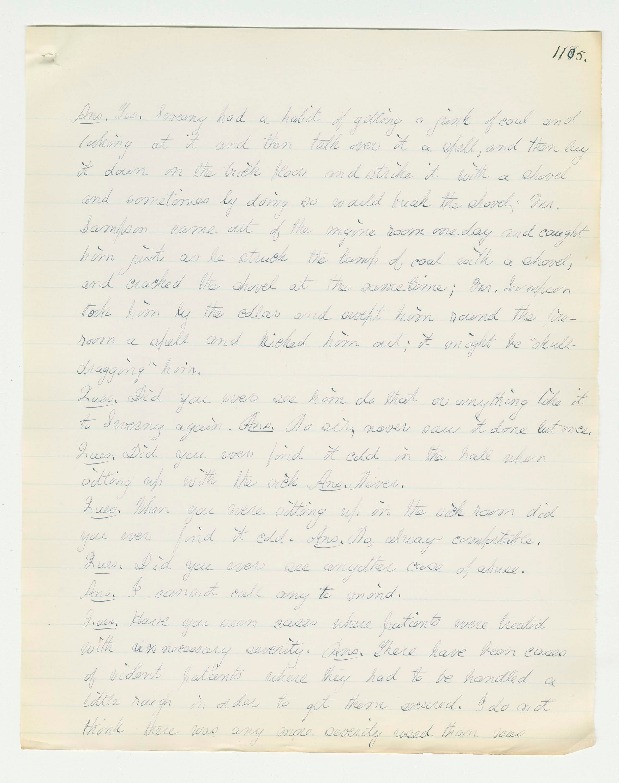 1105.
Ans. Yes. had a habit of getting a junk of coal and
looking at it and then talk over it a spell, and then lay
it down on the brick floor and strike it with a shovel
and sometimes by doing so would break the shovel; Mr.
Sampson came out of the engine room one day and caught
him just as he struck the lump of coal with a shovel,
and cracked the shovel at the sametime; Mr. Sampson
took him by the collar and swept him round the fire-
room a spell and kicked him out; it might be "skull-
dragging" him.
Ques. Did you ever see him do that or anything like it
to again. Ans. No sir, never saw it done but once.
Ques. Did you ever find it cold in the hall when
sitting up with the sick Ans. Never.
Ques. When you were sitting up in the sick room did
you ever find it cold. Ans. No, alway comfortable.
Ques. Did you ever see anyother case of abuse.
Ans. I cannot call any to mind.
Ques. Have you seen cases where patients were treated
with unnecessary severity. Ans. There have been cases
of violent patients where they had to be handled a
little rough in order to get them secured. I do not
think there was any more severity used than was